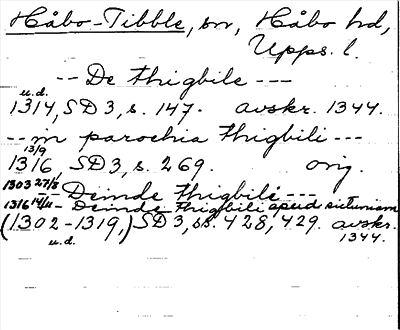 Håbo-Tibble, sn, Håbo hd,
Upps. l.
-- De thigbile ---
u.d.
1314, SD 3, s. 147. avskr. 1344.
-- in parochia thigbili ---
13/9
1316 SD 3, s. 269. orig.
1303 27/3 -- Deinde Thigbile ---
1316 14/11 - Deinde Thigbili apud sictuniam
(1302-1319,) SD 3, ss. 428, 429. avskr.
u.d. 1344.